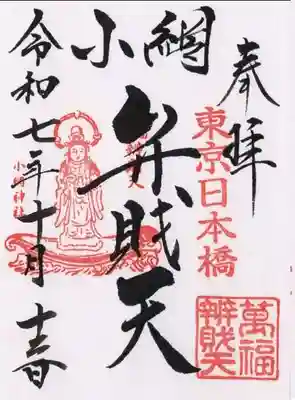 奉拝
東京日本橋
萬福
辨財天
小網
弁財天
小網神社
令和七年十月